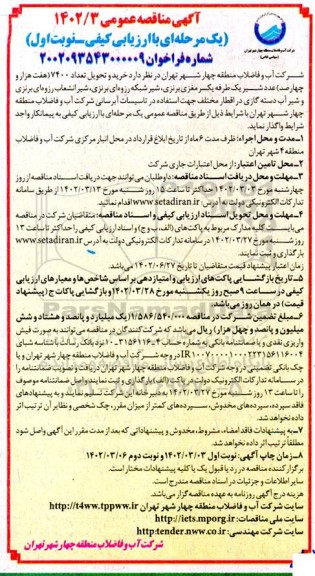 شرکت آب و فاضلاب منطقه چهار شهر تهران
(سهامی خاص)
آگهی مناقصه عمومی ۱۴۰۲/۳
(یک مرحله‌ای با ارزیابی کیفی_نوبت اول)
شماره فراخوان ۲۰۰۲۰۹۳۵۴۳۰۰۰۰۰۹
شرکت آب و فاضلاب منطقه چهار شهر تهران در نظر دارد خرید و تحویل تعداد ۷۴۰۰ (هفت هزار و
چهارصد) عدد شیر یک طرفه یکسر مغزی برنزی، شیر شبکه رزوه‌ای برنزی، شیر انشعاب رزوه‌ای برنزی
و شیر آب دسته گازی در اقطار مختلف جهت استفاده در تاسیسات آبرسانی شرکت آب و فاضلاب منطقه
چهار شهر تهران با شرایط ذیل از طریق مناقصه عمومی یک مرحله‌ای با ارزیابی کیفی به پیمانکار واجد
شرایط واگذار نماید.
۱-مدت و محل اجراء: ظرف مدت ۶ ماه از تاریخ ابلاغ قرارداد در محل انبار مرکزی شرکت آب و فاضلاب
منطقه ۴ شهر تهران
۲-محل تامین اعتبار: از محل اعتبارات جاری شرکت
۳-مهلت و محل دریافت اسناد مناقصه: داوطلبان می‌توانند جهت دریافت اسناد مناقصه از روز
چهارشنبه مورخ ۱۴۰۲/۰۳/۰۳ حداکثر تا ساعت ۱۵ روز شنبه مورخ ۱۴۰۲/۰۳/۱۳ از طریق سامانه
تدارکات الکترونیکی دولت به آدرس www.setadiran.ir اقدام نمائید.
۴-مهلت و محل تحویل اسناد ارزیابی کیفی و اسناد مناقصه: متقاضیان شرکت در مناقصه
می‌بایست کلیه مدارک مربوط به پاکت‌های (الف، ب و ج) و اسناد ارزیابی کیفی را حداکثر تا ساعت ۱۳
روز شنبه مورخ ۱۴۰۲/۰۳/۲۷ در سامانه تدارکات الکترونیکی دولت به آدرس www.setadiran.ir
بارگذاری و ثبت نمایند.
زمان اعتبار پیشنهاد قیمت متقاضیان تا تاریخ ۱۴۰۲/۰۶/۲۷ می‌باشد.
۵-تاریخ بازگشایی پاکت‌های ارزیابی و امتیازدهی بر اساس شاخص‌ها و معیارهای ارزیابی
کیفی در ساعت ۹ صبح روز یکشنبه مورخ ۱۴۰۲/۰۳/۲۸ و بازگشایی پاکات ج (پیشنهاد
قیمت) در همان روز می‌باشد.
۶-مبلغ تضمین شرکت در مناقصه ۱/۵۸۶/۵۴۰/۰۰۰ (یک میلیارد و پانصد و هشتاد و شش
میلیون و پانصد و چهل هزار) ریال می‌باشد که شرکت‌کنندگان در مناقصه می‌توانند به صورت فیش
واریزی نقدی و یا ضمانتنامه بانکی به شماره حساب
در وجه شرکت آب و فاضلاب منطقه چهار شهر تهران و یا
چک بانکی تضمینی در وجه شرکت آب و فاضلاب منطقه چهار شهر تهران دریافت و تصویر ضمانتنامه را
در سامانه تدارکات الکترونیکی دولت در پاکت (الف) بارگذاری و ثبت نمایند و اصل ضمانتنامه موصوف
را تا ساعت ۱۳ روز شنبه مورخ ۱۴۰۲/۰۳/۲۷ به دبیرخانه این شرکت تسلیم نمایند و به پیشنهادهای
فاقد سپرده، سپرده‌های مخدوش، سپرده‌های کمتر از میزان مقرر، چک شخصی و نظایر آن ترتیب اثر
داده نخواهد شد.
۷-به پیشنهادات فاقد امضاء، مشروط، مخدوش و پیشنهاداتی که بعد از مدت مقرر این آگهی واصل شود
مطلقا ترتیب اثر داده نخواهد شد.
۸-زمان چاپ آگهی: نوبت اول ۱۴۰۲/۰۳/۰۳ و نوبت دوم ۱۴۰۲/۰۳/۰۶
برگزارکننده مناقصه در رد یا قبول یک یا کلیه پیشنهادات مختار است.
سایر اطلاعات و جزئیات در اسناد مناقصه مندرج است.
هزینه درج آگهی روزنامه به عهده مناقصه‌گزار می‌باشد.
سایت شرکت آب و فاضلاب منطقه چهار شهر تهران http://t4ww.tpww.ir
سایت ملی مناقصات: http://iets.mporg.ir
سایت شرکت مهندسی: http:tender.nww.co.ir
شرکت آب و فاضلاب منطقه چهار شهر تهران